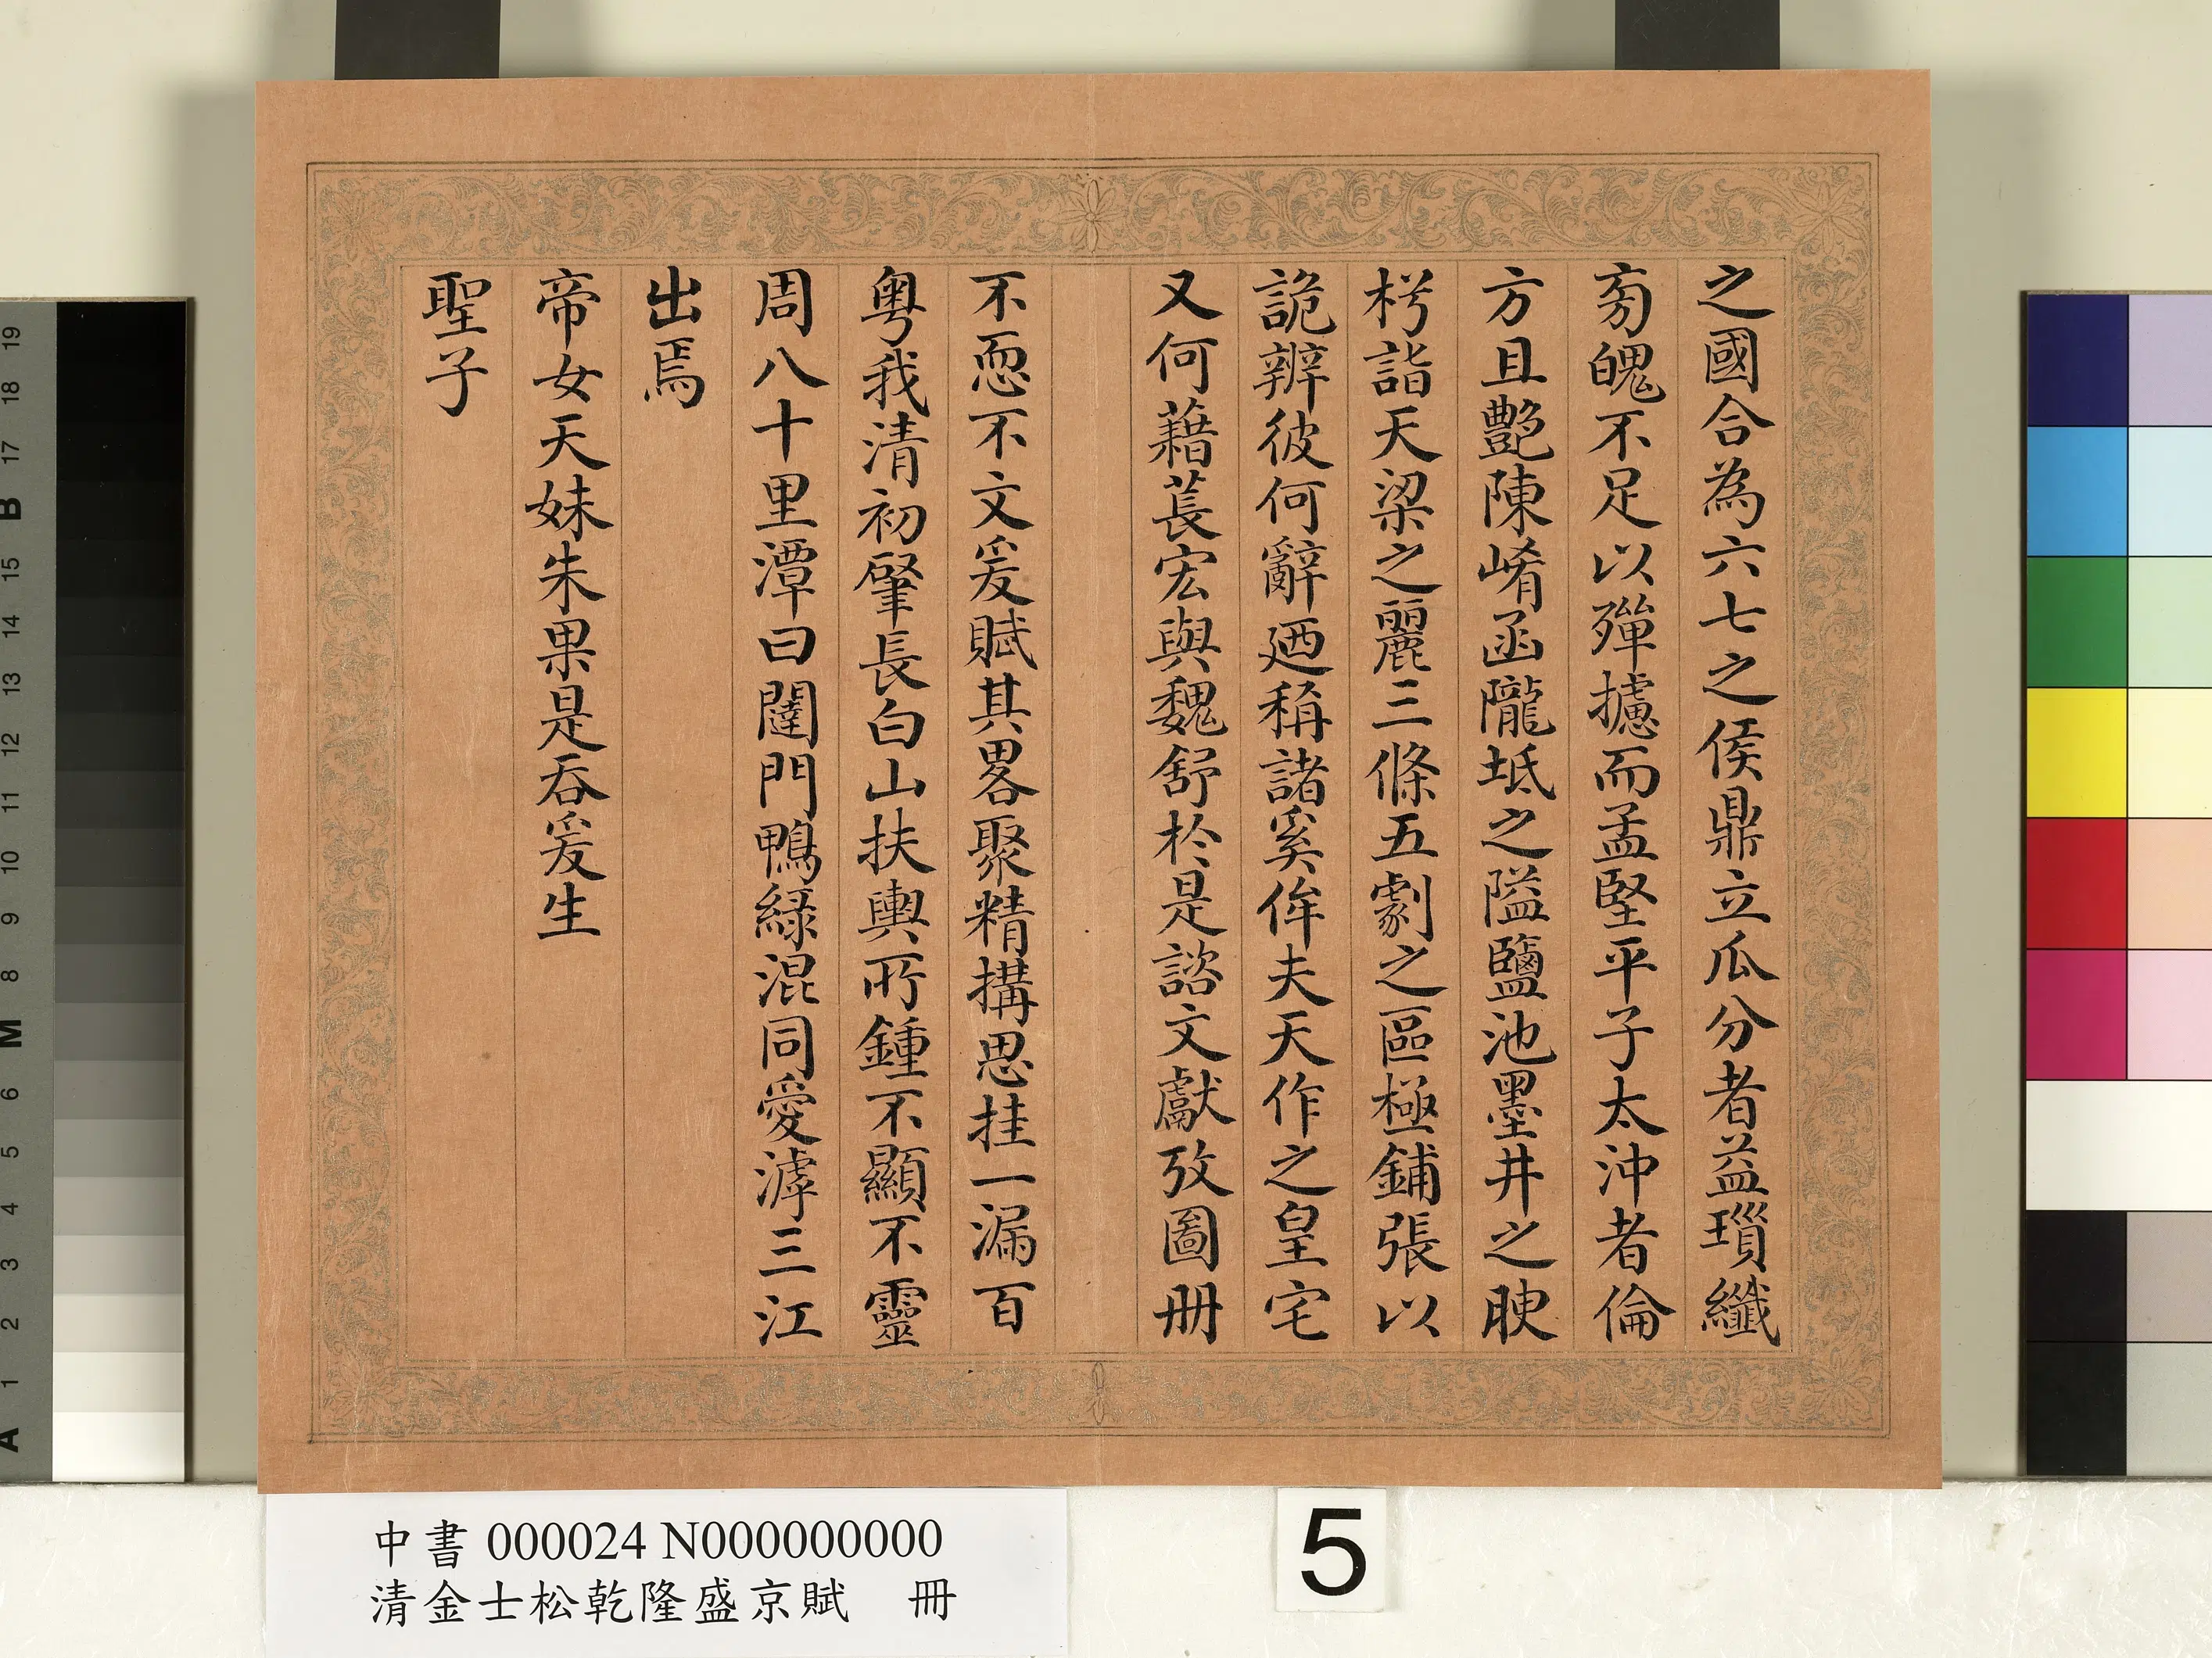 之國合為六七之侯鼎立瓜分者益瑣纖
旁魄不足以殫攄而孟堅平子太沖者倫
方且艶陳崤函隴坻之隘鹽池墨井之腴
枍詣天梁之麗三條五劇之區極鋪張以
詭辨彼何辭廼稱諸奚侔夫天作之皇宅
又何藉萇宏與魏舒於是諮文獻攷圖冊
不恧不文爰賦其畧聚精搆思挂一漏百
粵我清初肇長白山扶輿所鍾不顯不靈
周八十里潭曰闥門鴨綠混同愛滹三江
出焉
帝女天妹朱果是吞爰生
聖子
中書 000024 N000000000
清金士松乾隆盛京賦 冊
5
19
18
17
B
15
14
13
12
11
10
9
8
M
6
5
4
3
2
1
A